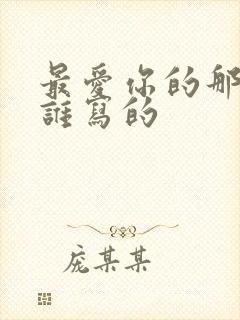 最愛你的那
誰寫的
庞某某